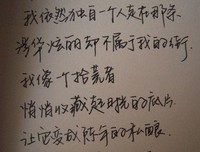 我依然独自一个人走在那条
浮华炫丽却不属于我的街.
我像一个拾荒者
悄悄收藏起时光的底片
让它变成陈年的私酿.